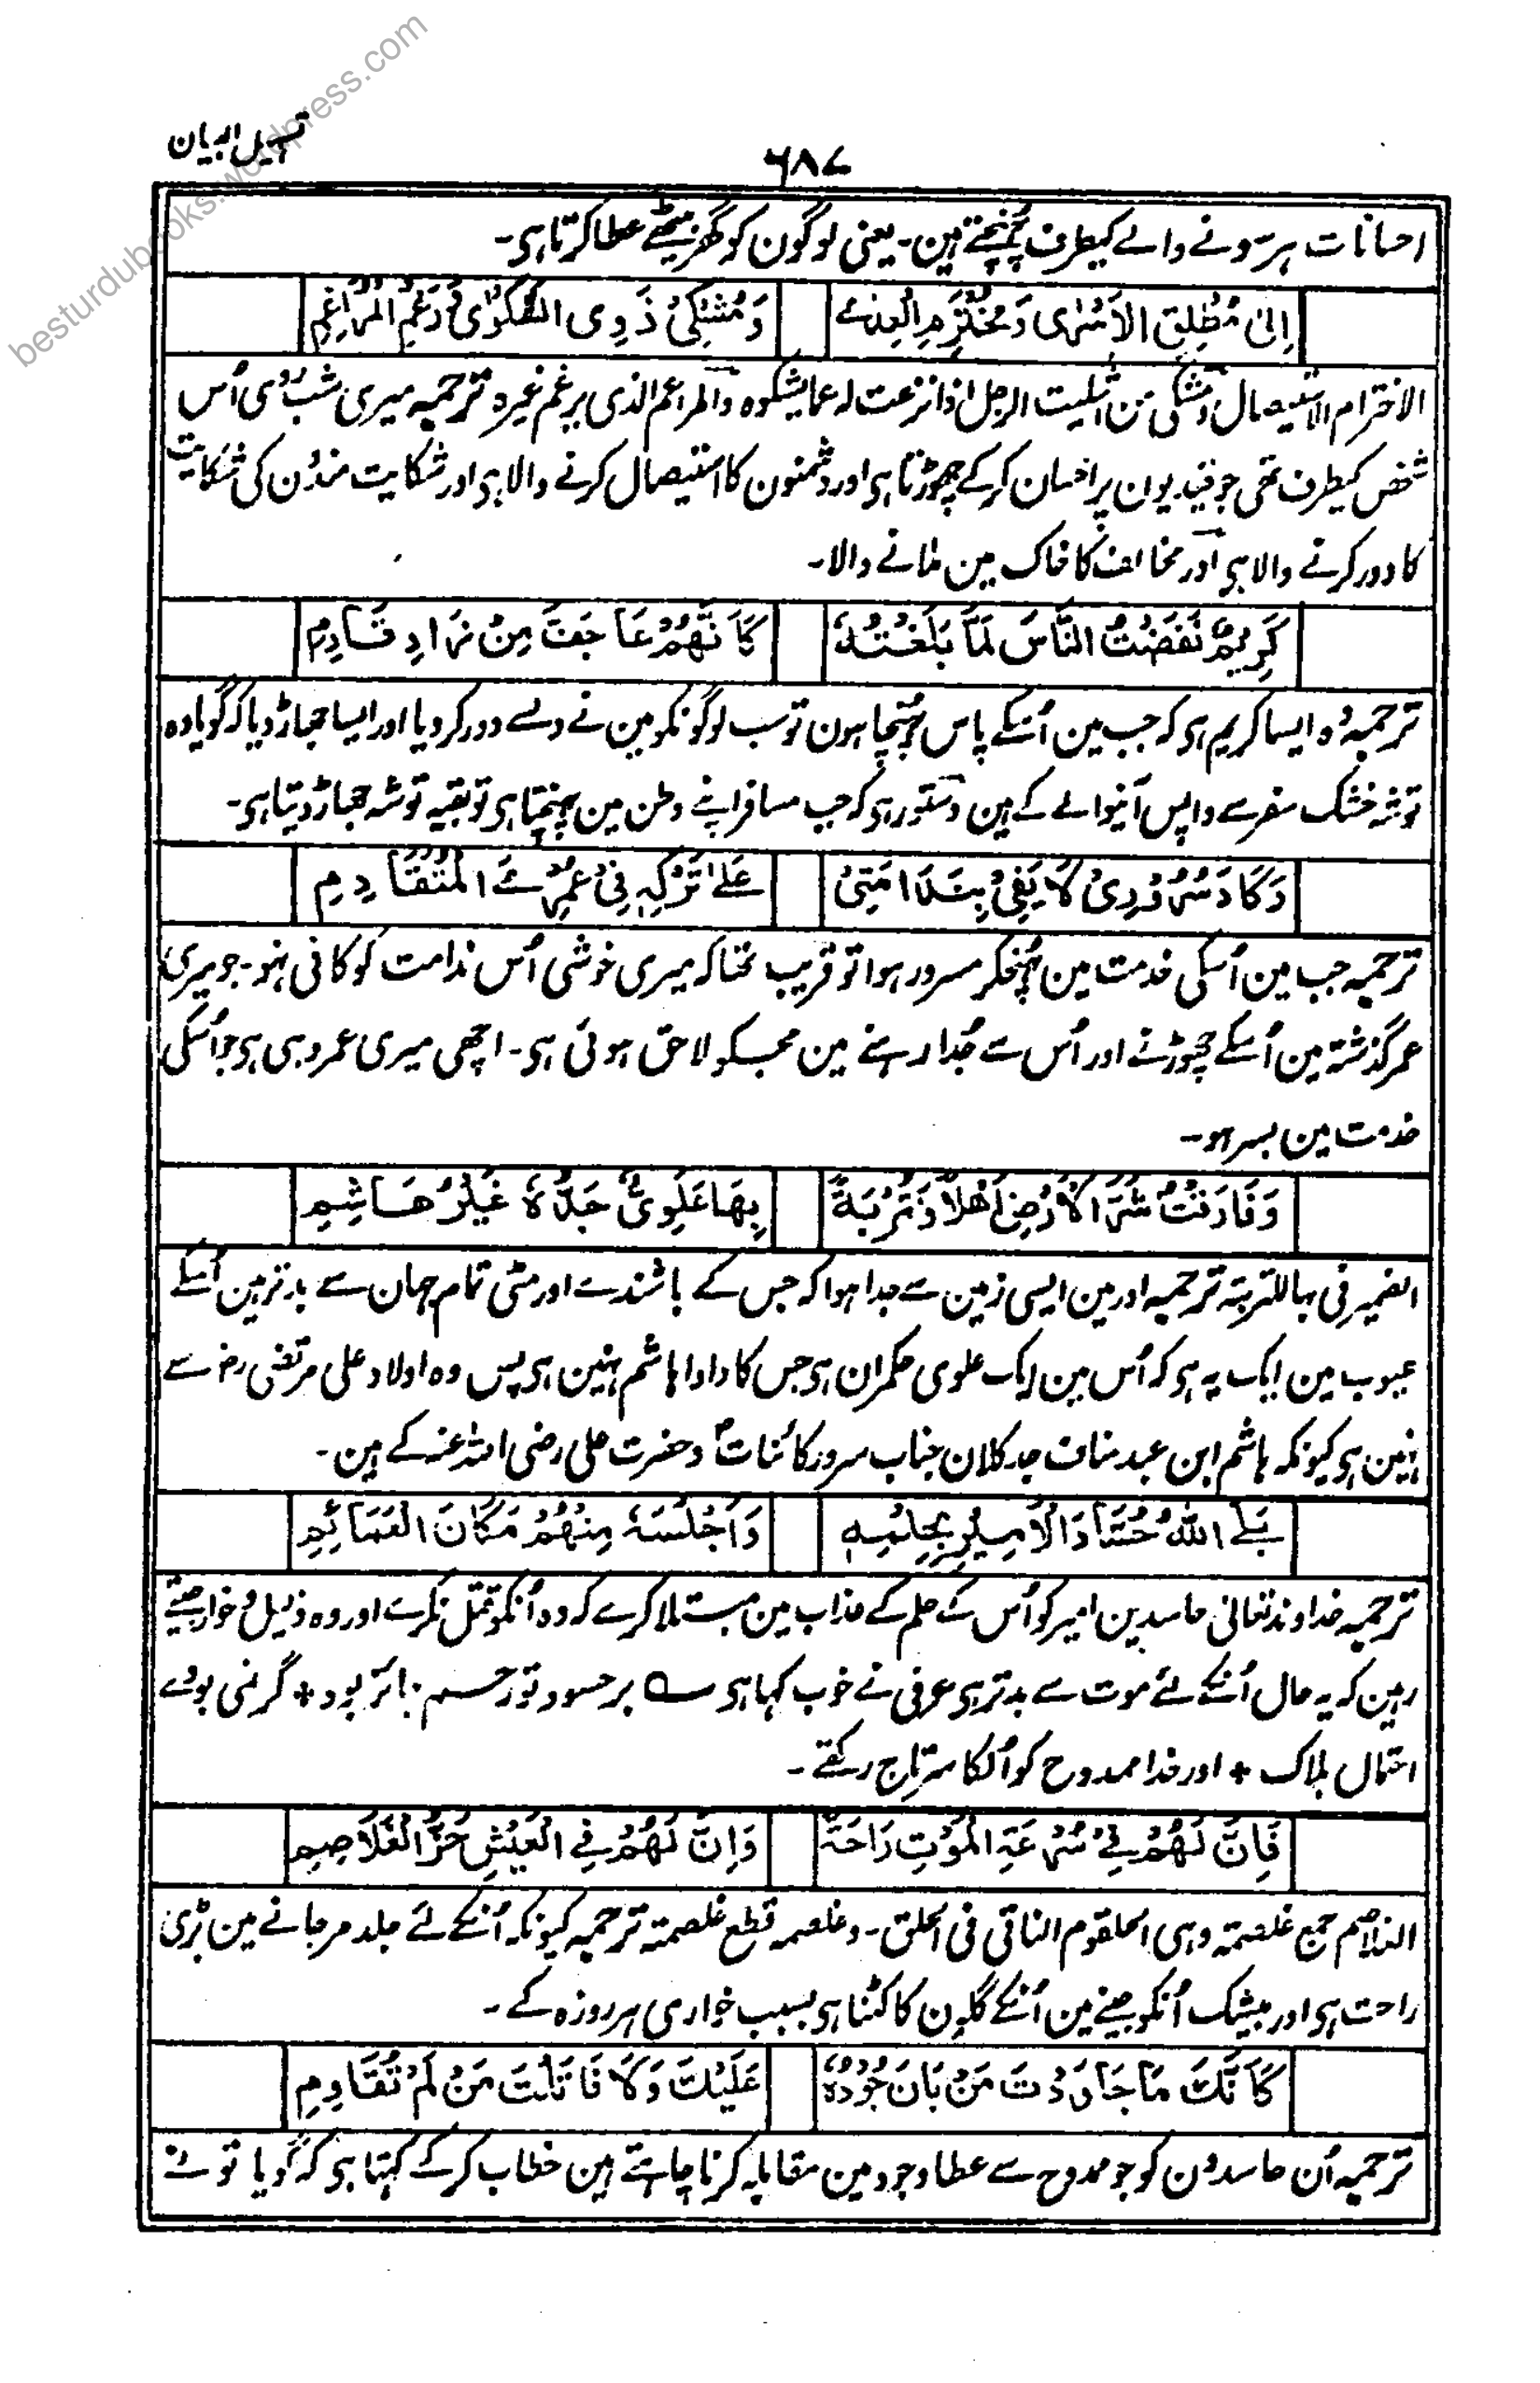 besturdubooks.wordpress.com
تسہیل البیان
۶۸۷
احسانات ہر سونے والے کیطرف پہنچتے ہین۔ یعنی لوگون کو گھر بیٹھے عطا کرتا ہی۔
اِلیٰ مُطْلِقِ الْاَسْرٰی وَمُخْتَرِمِ الْعِدٰے وَمُشْکِیْ ذَوِی الشَّکْوٰی وَرَغْمِ الْمُرَاغِمِ
الاخترام الاستیصال ومشکی من اشکیت الرجل اذا نزعت لہ عما یشکوہ والمراغم الذی یرغم غیرہ ترجمہ میری شب روی اُس
شخص کیطرف تھی جو قیدیون پر احسان کرکے چھوڑتا ہی اور دشمنون کا استیصال کرنے والا ہی اور شکایت مندون کی شکایت
کا دور کرنے والا ہی اور مخالف کا خاک مین ملانے والا۔
کَرِیْمٌ نَفَضْتُ النَّاسَ لَمَّا بَلَغْتُہٗ کَاَنَّھُمْ مَا جَفَّ مِنْ زَادِ قَادِمِ
ترجمہ وہ ایسا کریم ہی کہ جب مین اُسکے پاس پہنچا ہون تو سب لوگونکو مین نے دلسے دور کردیا اور ایسا جھاڑ دیا کہ گویا وہ
توشہ خشک سفر سے واپس آنیوالے کے ہین دستور ہی کہ جب مسافر اپنے وطن مین پہنچتا ہی تو بقیہ توشہ جھاڑ دیتا ہی۔
وَکَادَ سُرُوْرِیْ لَا یَفِیْ بِنَدَامَتِیْ عَلٰے تَرْکِہٖ فِیْ عُمْرِیَ الْمُتَقَادِمِ
ترجمہ جب مین اُسکی خدمت مین پہنچکر مسرور ہوا تو قریب تھا کہ میری خوشی اُس ندامت کو کافی نہو۔ جو میری
عمر گذشتہ مین اُسکے چھوڑنے اور اُس سے جُدا رہنے مین مجھکو لاحق ہوئی ہی۔ اچھی میری عمر وہی ہی جو اُسکی
خدمت مین بسر ہو۔
وَفَارَقْتُ شَرَّ الْاَرْضِ اَھْلًا وَتُرْبَۃً بِھَا عَلَوِیٌّ جَدُّہٗ غَیْرُ ھَاشِمِ
الضمیر فی بہا للتربۃ ترجمہ اور مین ایسی زمین سے جدا ہوا کہ جس کے باشندے اور مٹی تمام جہان سے بدتر ہین اُسکے
عیوب مین ایک یہ ہی کہ اُس مین ایک علوی حکمران ہی جس کا دادا ہاشم نہین ہی پس وہ اولاد علی مرتضی رض سے
نہین ہی کیونکہ ہاشم ابن عبد مناف جد کلان جناب سرور کائنات ؐ وحضرت علی رضی اللہ عنہ کے ہین۔
بَلَی اللّٰہُ حُسَّادَ الْاَمِیْرِ بِحِلْمِہٖ وَاَجْلَسَہٗ مِنْھُمْ مَکَانَ الْعَمَائِمِ
ترجمہ خداوند تعالی حاسدین امیر کو اُس کے حلم کے عذاب مین مبتلا کرے کہ وہ اُنکو قتل نکرے اور وہ ذلیل وخوار جیتے
رہین کہ یہ حال اُنکے لئے موت سے بدتر ہی عرفی نے خوب کہا ہی ؎ بر حسود تو رحم جائز بود * گر نمی بودے
احتمال ہلاک * اور خدا ممدوح کو اُنکا سرتاج رکھے۔
فَاِنَّ لَھُمْ فِیْ سُرْعَۃِ الْمَوْتِ رَاحَۃً وَاِنَّ لَھُمْ فِی الْعَیْشِ حَزَّ الْغَلَاصِمِ
الغلاصم جمع غلصمۃ وہی الحلقوم الناتی فی الحلق۔ وغلصمہ قطع غلصمتہ ترجمہ کیونکہ اُنکے لئے جلد مرجانے مین بڑی
راحت ہی اور بیشک اُنکو جینے مین اُنکے گلون کا کٹنا ہی بسبب خواری ہر روزہ کے۔
کَاَنَّکَ مَا جَاوَدْتَ مَنْ بَانَ جُوْدُہٗ عَلَیْکَ وَلَا قَاتَلْتَ مَنْ لَمْ تُقَادِمِ
ترجمہ اُن حاسدون کو جو ممدوح سے عطا وجود مین مقابلہ کرنا چاہتے ہین خطاب کرکے کہتا ہی کہ گویا تو نے